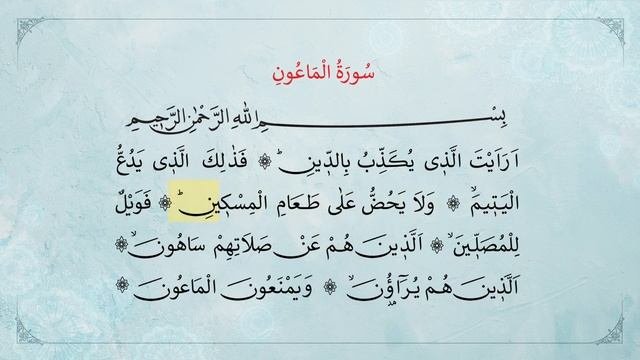 سُورَةُ الْمَاعُونِ
بِسْمِ اللّٰهِ الرَّحْمٰنِ الرَّحٖيمِ
اَرَاَيْتَ الَّذٖى يُكَذِّبُ بِالدّٖينِ ؕ ۞ فَذٰلِكَ الَّذٖى يَدُعُّ
الْيَتٖيمَۙ ۞ وَلَا يَحُضُّ عَلٰى طَعَامِ الْمِسْكٖينِ ؕ ۞ فَوَيْلٌ
لِلْمُصَلّٖينَۙ ۞ اَلَّذٖينَ هُمْ عَنْ صَلَاتِهِمْ سَاهُونَۙ ۞
اَلَّذٖينَ هُمْ يُرَٓاؤُ۫نَۙ ۞ وَيَمْنَعُونَ الْمَاعُونَ ۞